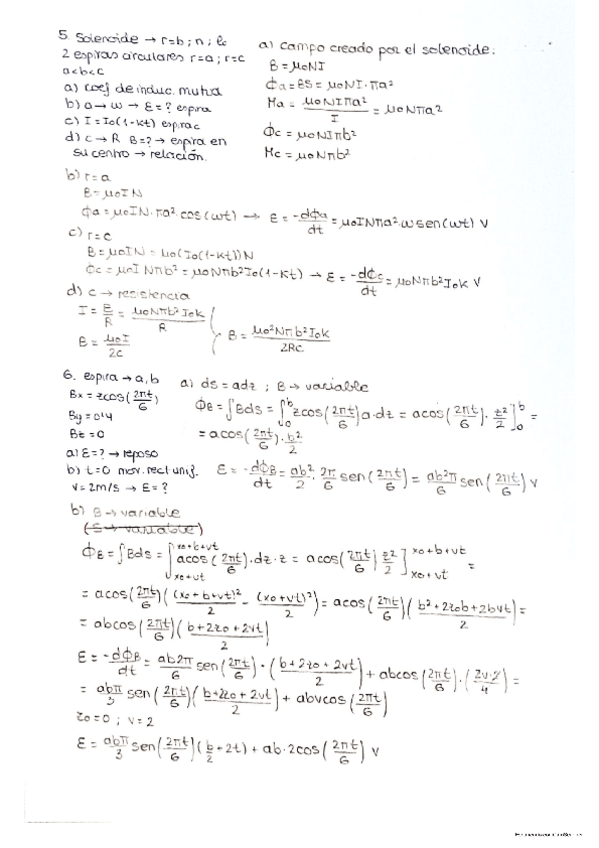 5. Solenoide → r=b; n; Ic
2 espiras circulares r=a; r=c
a<b<c
a) coef de induc. mutua
b) a → w → ε=? espira
c) I=Io(1-Kt) espira c
d) c → R B=? → espira en
su centro → relación.
a) campo creado por el solenoide:
B = μoNI
Φa = BS = μoNI·πa²
Ma = μoNIπa² / I = μoNπa²
Φc = μoNIπb²
Mc = μoNπb²
b) r=a
B = μoIN
Φa = μoIN·πa²·cos(wt) → ε = -dΦa/dt = μoINπa²·w sen(wt) V
c) r=c
B = μoIN = μo(Io(1-Kt))N
Φc = μoI Nπb² = μoNπb²Io(1-Kt) → ε = -dΦc/dt = μoNπb²IoK V
d) c → resistencia
I = E/R = μoNπb²IoK / R
B = μoI / 2c
B = μo²Nπb²IoK / 2Rc
6. espira → a,b
Bx = zcos(2πt/6)
By = 0'4
Bz = 0
a) ε=? → reposo
b) t=0 mov. rect. unif.
v=2m/s → ε=?
a) ds = adz ; B → variable
ΦB = ∫Bds = ∫₀ᵇ zcos(2πt/6)a·dz = acos(2πt/6)·z²/2]₀ᵇ =
= acos(2πt/6)·b²/2
ε = -dΦB/dt = ab²/2·2π/6 sen(2πt/6) = ab²π/6 sen(2πt/6) V
b) B → variable
(S → variable)
ΦE = ∫Bds = ∫ acos(2πt/6)·dz·z = acos(2πt/6) z²/2] xo+b+vt xo+vt =
= acos(2πt/6)((xo+b+vt)²/2 - (xo+vt)²/2) = acos(2πt/6)(b²+2zob+2bvt / 2) =
= abcos(2πt/6)(b+2zo+2vt / 2)
ε = -dΦB/dt = ab2π/6 sen(2πt/6)·(b+2zo+2vt / 2) + abcos(2πt/6)·(2v·2/4) =
= abπ/3 sen(2πt/6)(b+2zo+2vt / 2) + abvcos(2πt/6)
zo=0 ; v=2
ε = abπ/3 sen(2πt/6)(b/2+2t) + ab·2cos(2πt/6) V